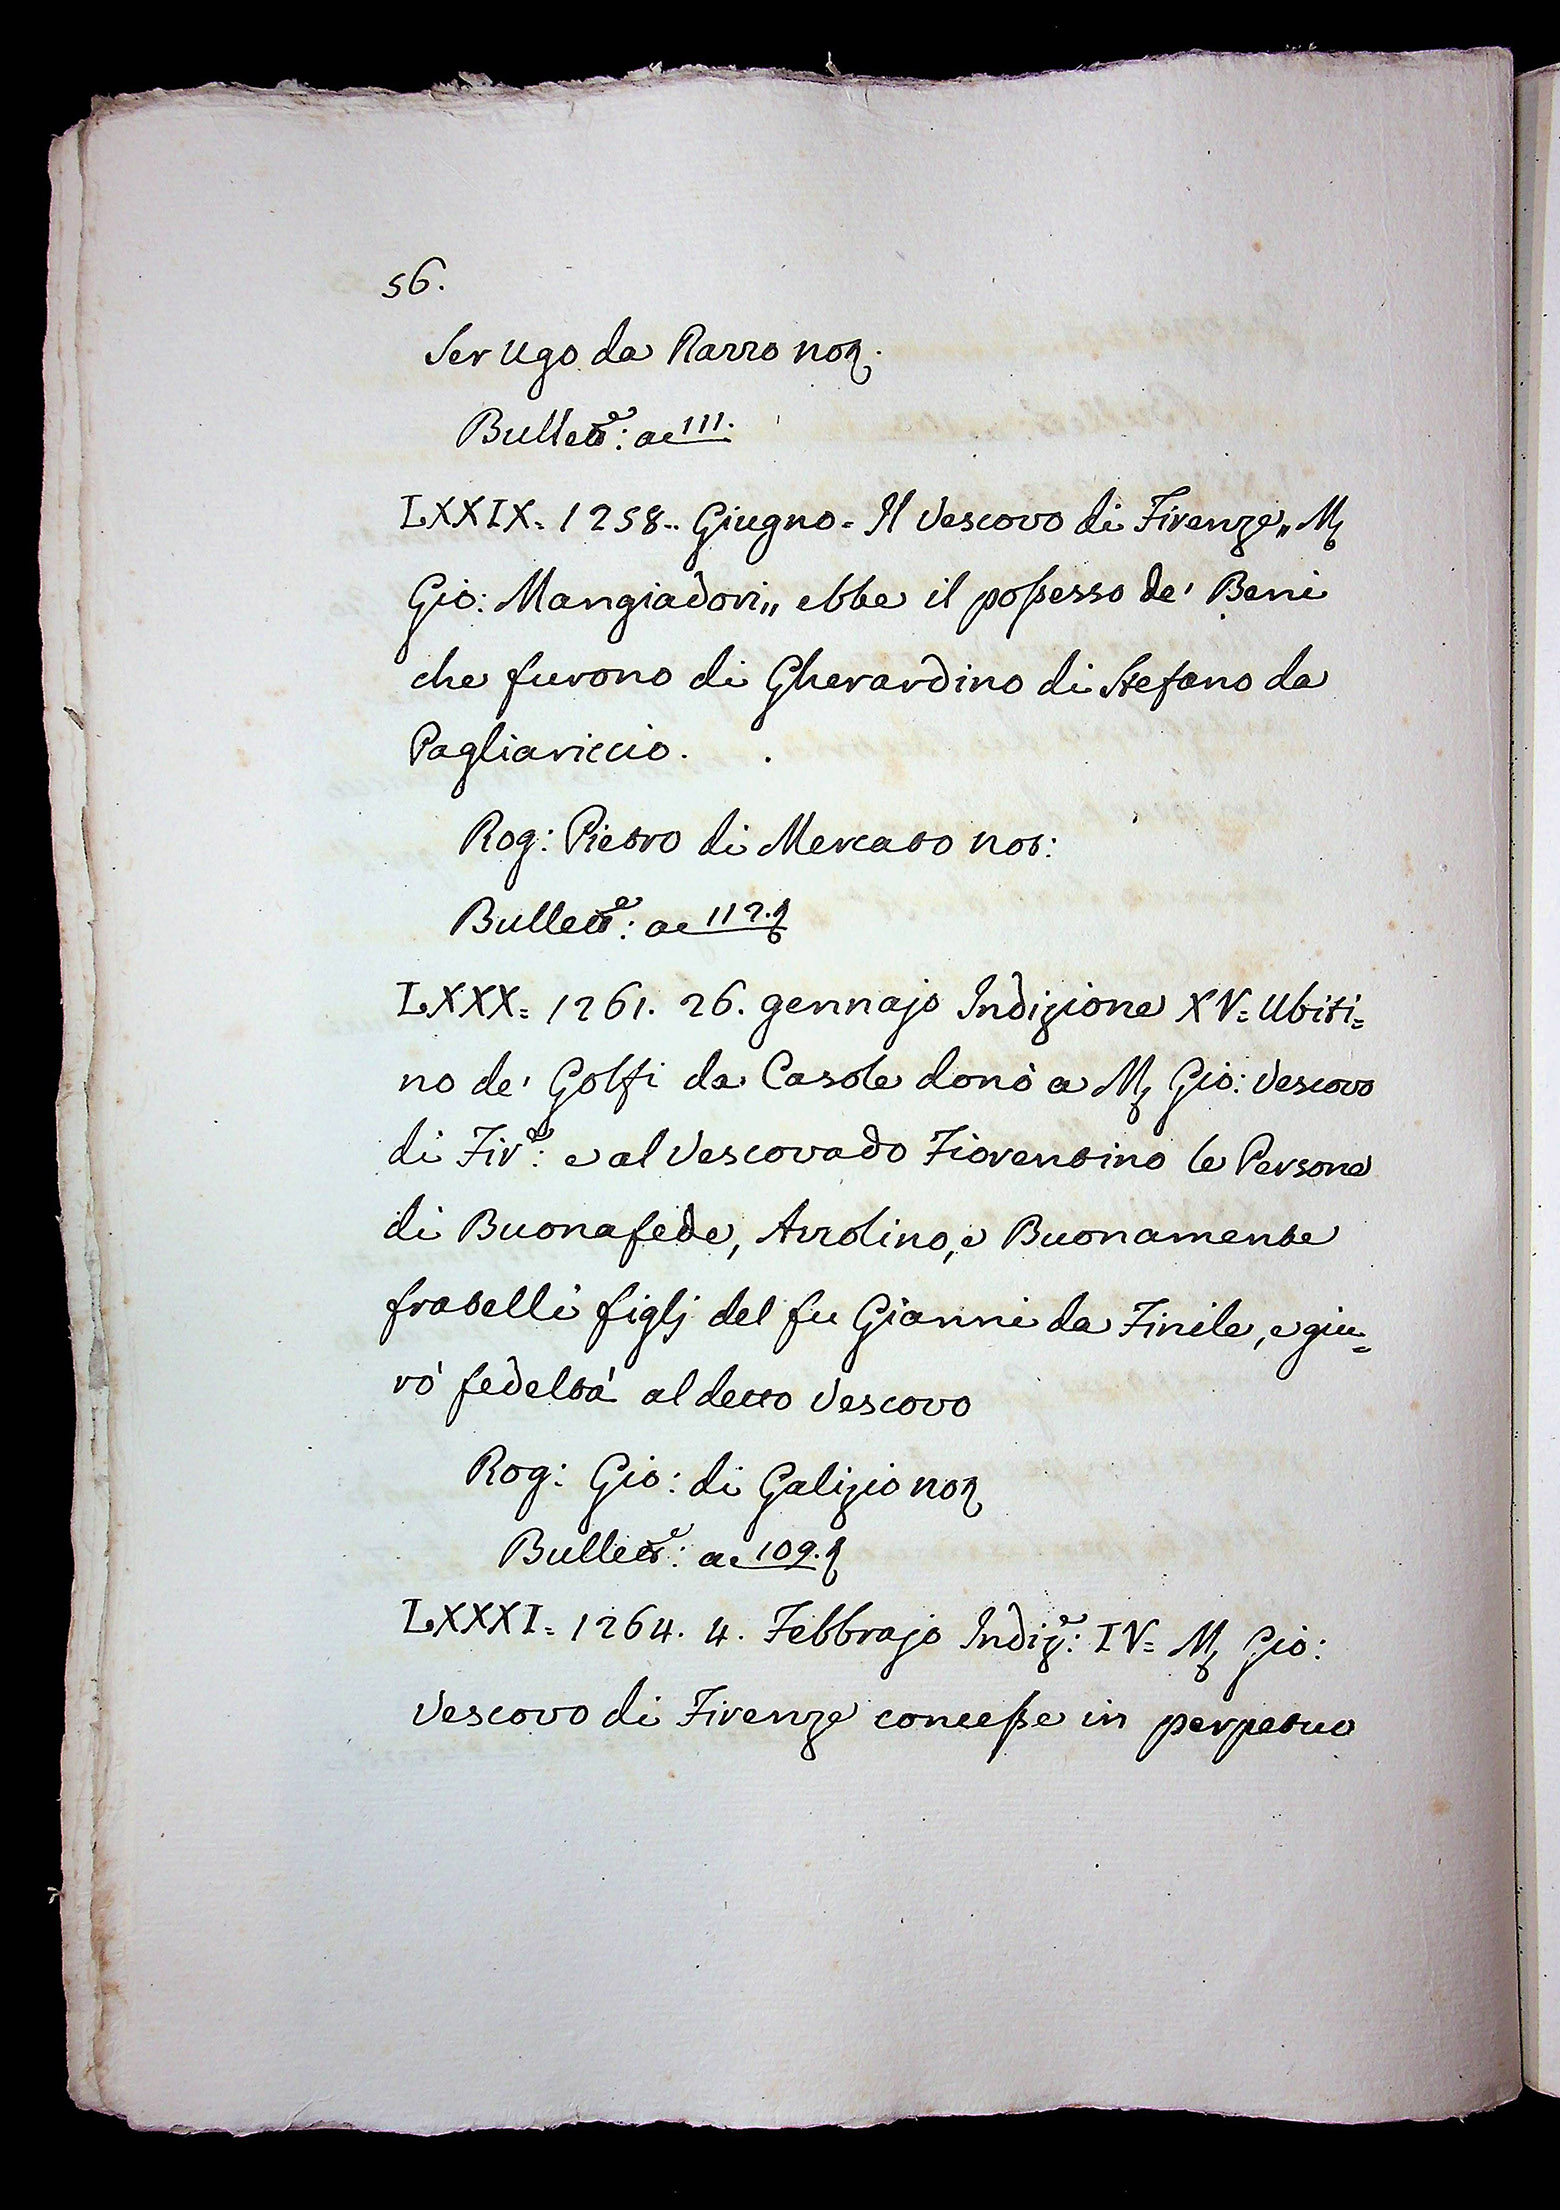 56.
Ser Ugo da Razzo not.
Bullett.e: a c 111.
LXXIX= 1258.. Giugno= Il Vescovo di Firenze,, M.
Gio: Mangiadori,, ebbe il possesso de' Beni
che furono di Gherardino di Stefano da
Pagliariccio.
Rog: Pietro di Mercato not:
Bullett.e: a c 112.
LXXX= 1261. 26. gennajo Indizione XV= Ubiti=
no de' Golfi da Casole donò a M. Gio: Vescovo
di Fir.e: e al Vescovado Fiorentino le Persone
di Buonafede, Azzolino, e Buonamente
fratelli figlj del fu Gianni da Finile, e giu=
rò fedeltà al detto Vescovo
Rog: Gio: di Galizio not
Bullett.e: a c 109.
LXXXI= 1264. 4. Febbrajo Indiz.e: IV= M. Gio:
Vescovo di Firenze concesse in perpetuo